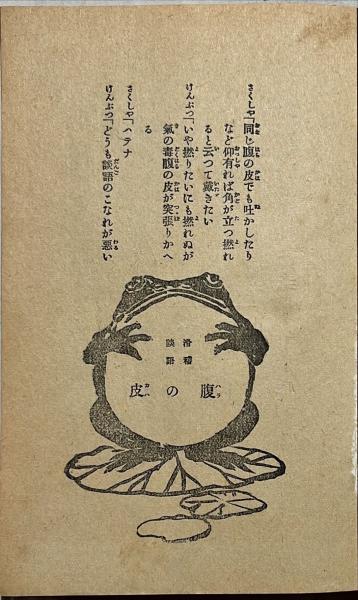 さくしや「同じ腹の皮でも吐かしたり
など仰有れば角が立つ撚れ
ると云つて戴きたい
けんぶつ「いや撚りたいにも撚れぬが
氣の毒腹の皮が突張りかへ
る
さくしや「ハテナ
けんぶつ「どうも談語のこなれが悪い
滑稽
談語
腹の皮